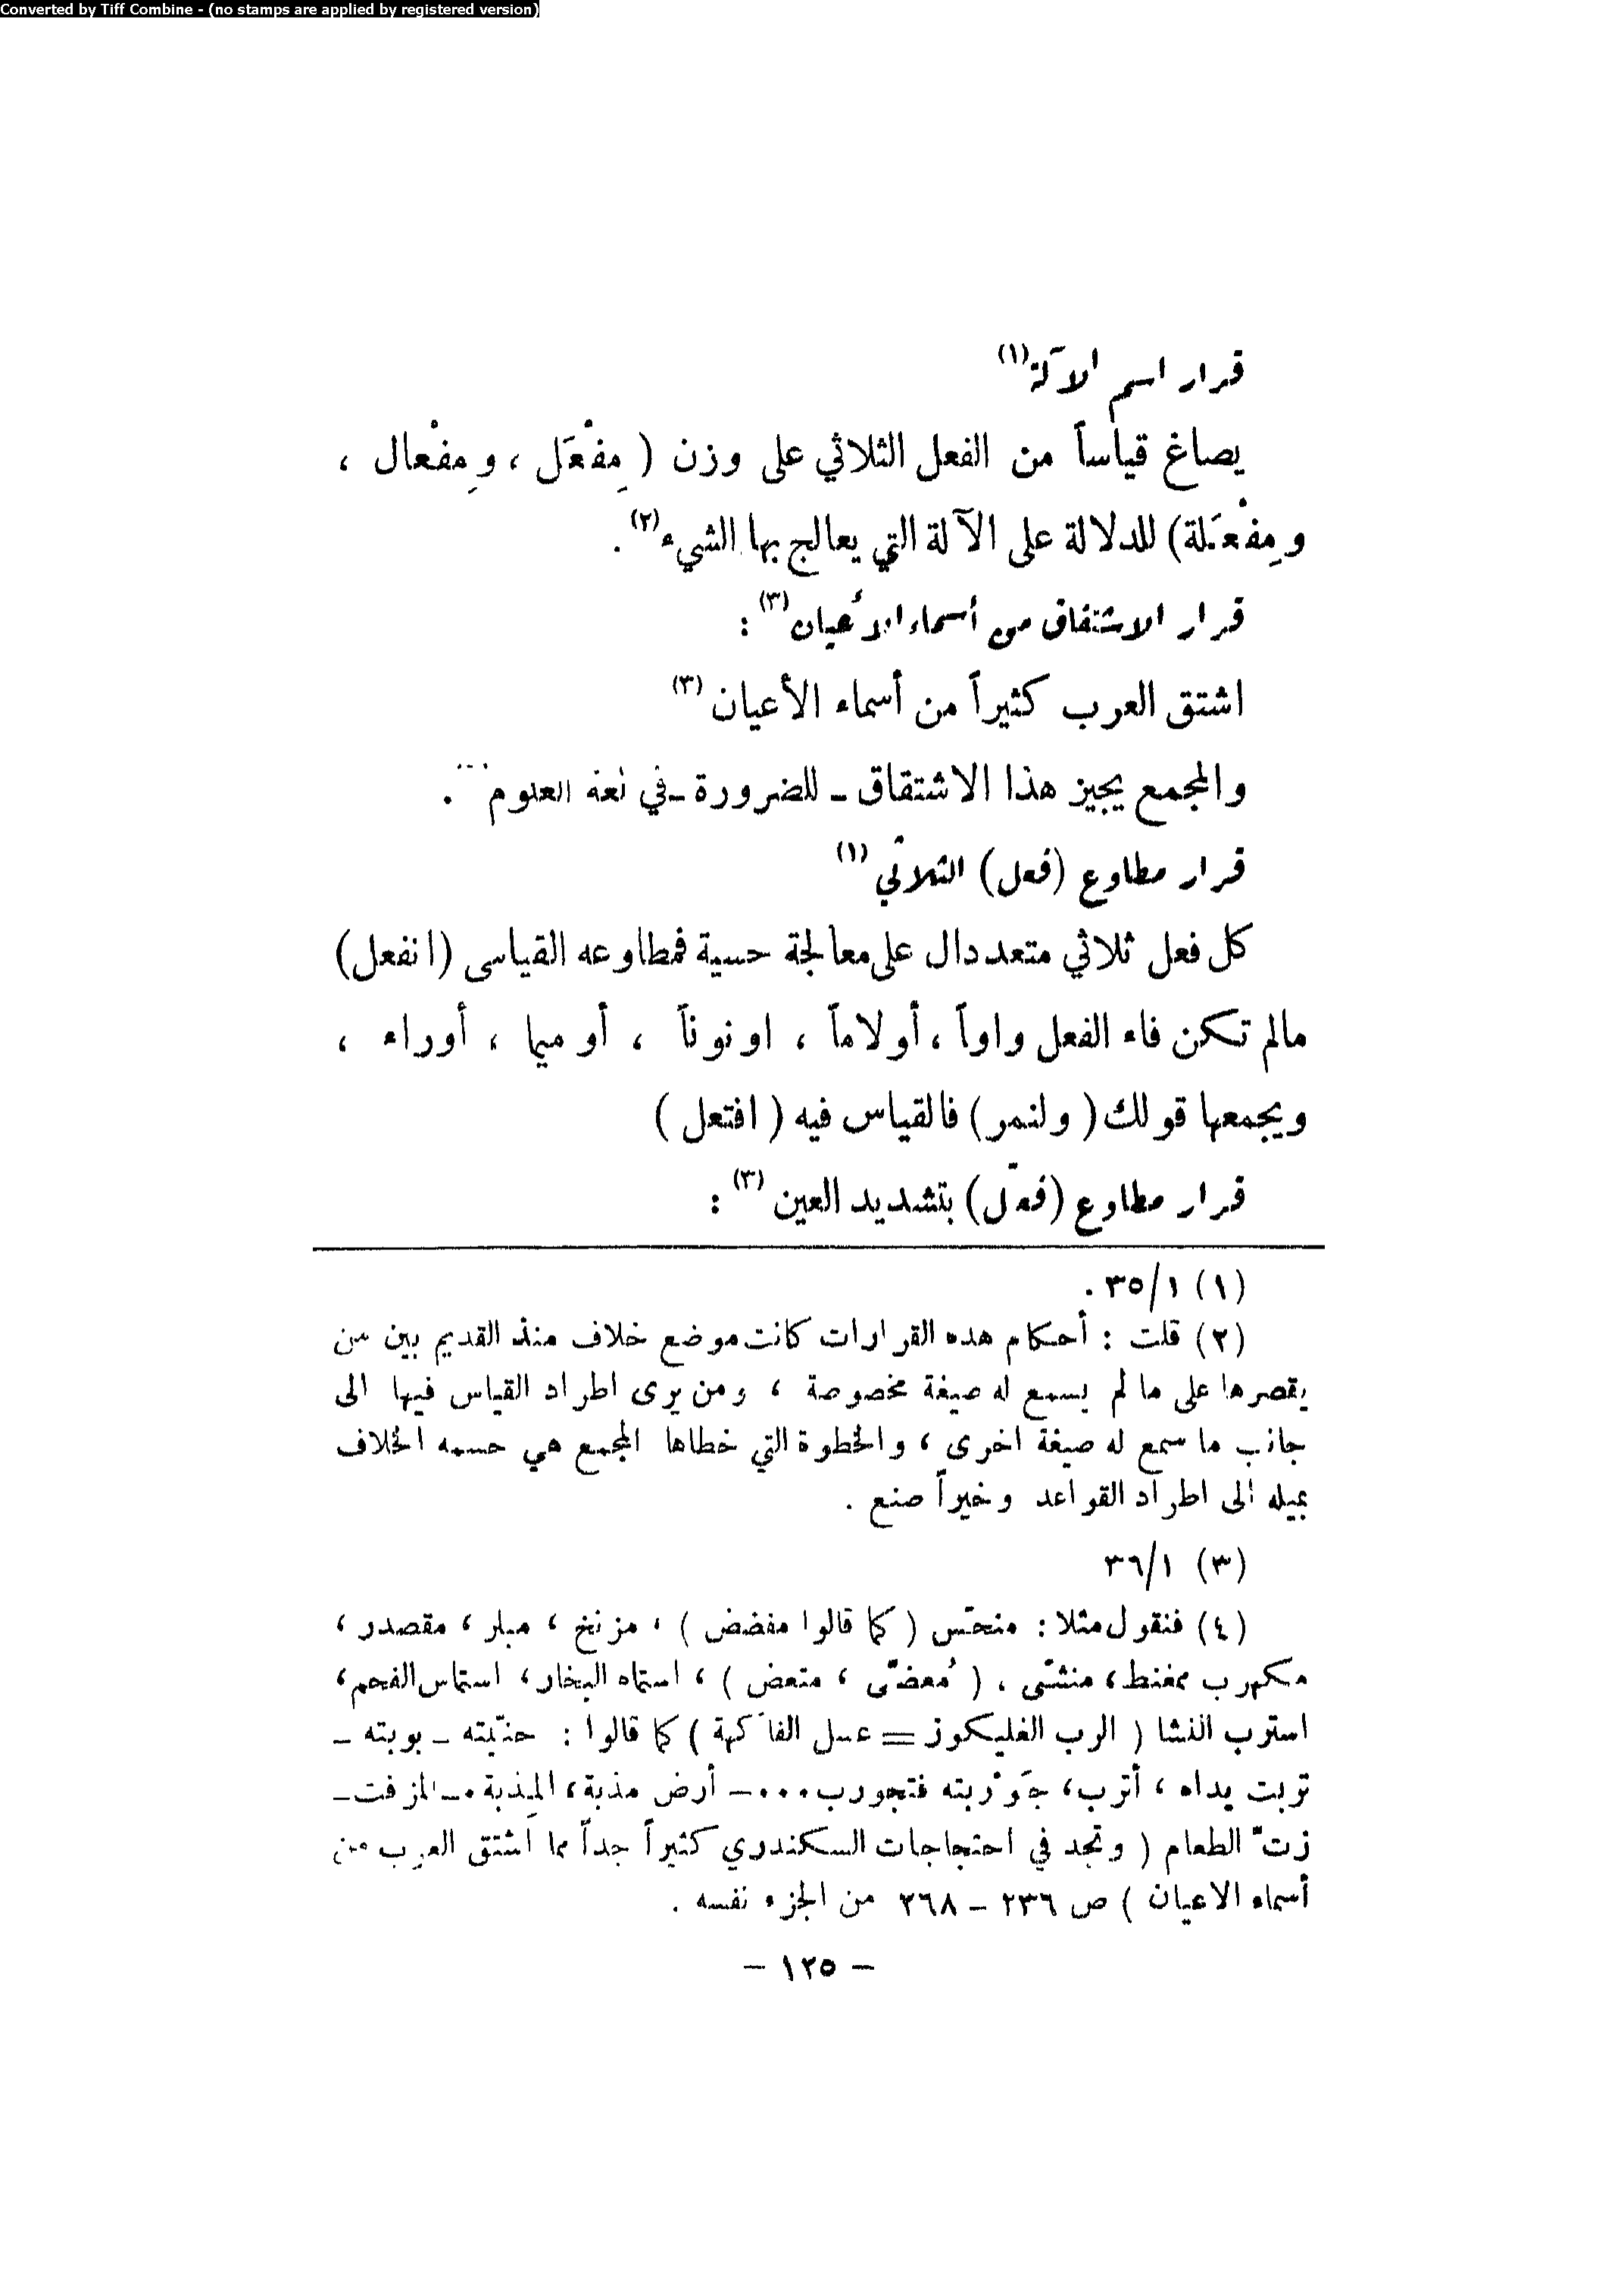 Converted by Tiff Combine - (no stamps are applied by registered version)
قرار اسم الآلة (١)
يصاغ قياساً من الفعل الثلاثي على وزن ( مِفْعَل ، ومِفْعال ،
ومِفْعَلة) للدلالة على الآلة التي يعالج بها الشيء (٢) .
قرار الاشتقاق من أسماء الأعيان (٣) :
اشتق العرب كثيراً من أسماء الأعيان (٣)
والمجمع يجيز هذا الاشتقاق ـ للضرورة ـ في لغة العلوم .
قرار مطاوع (فعل) الثلاثي (١)
كل فعل ثلاثي متعد دال على معالجة حسية فمطاوعه القياسى (انفعل)
مالم تكن فاء الفعل واواً ، أولاماً ، او نوناً ، أو ميما ، أوراء ،
ويجمعها قولك ( ولنمر ) فالقياس فيه ( افتعل )
قرار مطاوع (فعّل) بتشديد العين (٣) :
(١) ٣٥/١ .
(٢) قلت : أحكام هده القرارات كانت موضع خلاف منذ القديم بين من
يقصرها على ما لم يسمع له صيغة مخصوصة ، ومن يرى اطراد القياس فيها الى
جانب ما سمع له صيغة اخرى ، والخطوة التي خطاها المجمع هي حسمه الخلاف
بميله الى اطراد القواعد وخيراً صنع .
(٣) ٣٦/١
(٤) فنقول مثلا : منحّس ( كما قالوا مفضض ) ، مزنخ ، مبلر ، مقصدر ،
مكهرب ممغنط ، منشّى ، ( مُعضّى ، متعض ) ، استماه البخار ، استماس الفحم ،
استرب النشا ( الرب الغليكوز = عسل الفاكهة ) كما قالوا : حنّيته ـ بوبته ـ
تربت يداه ، أترب ، جَوْربته فتجورب ... ـ أرض مذبة ، المِذبة . ـ المزفت ـ
زتّ الطعام ( وتجد في احتجاجات السكندري كثيراً جداً مما اشتق العرب من
أسماء الاعيان ) ص ٢٣٦ ـ ٢٦٨ من الجزء نفسه .
ـ ١٢٥ ـ